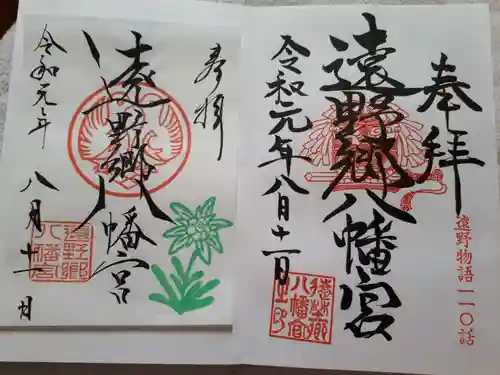 奉拝
遠野郷八幡宮
令和元年八月十一日
遠野物語一一〇話
奉拝
遠野郷八幡宮
令和元年
八月十一日
遠野郷
八幡宮